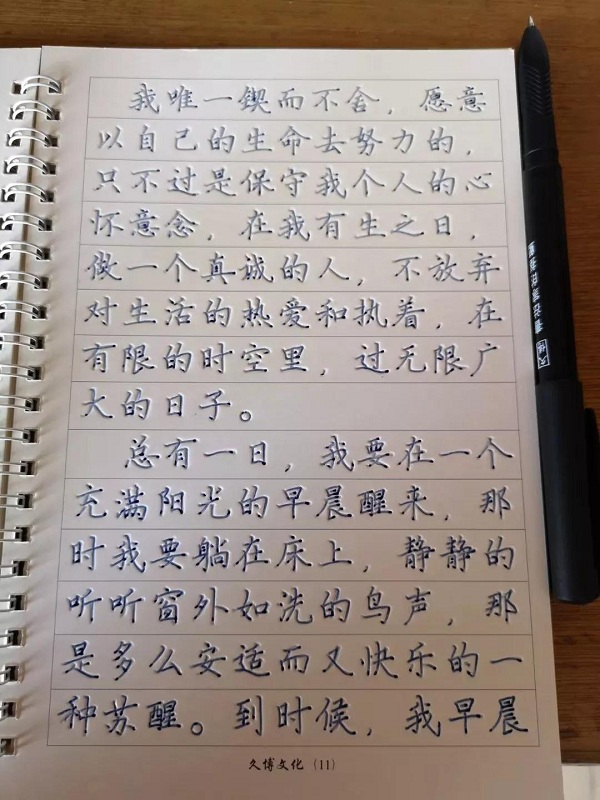 我唯一锲而不舍，愿意
以自己的生命去努力的，
只不过是保守我个人的心
怀意念，在我有生之日，
做一个真诚的人，不放弃
对生活的热爱和执着，在
有限的时空里，过无限广
大的日子。
总有一日，我要在一个
充满阳光的早晨醒来，那
时我要躺在床上，静静的
听听窗外如洗的鸟声，那
是多么安适而又快乐的一
种苏醒。到时候，我早晨
久博文化（11）